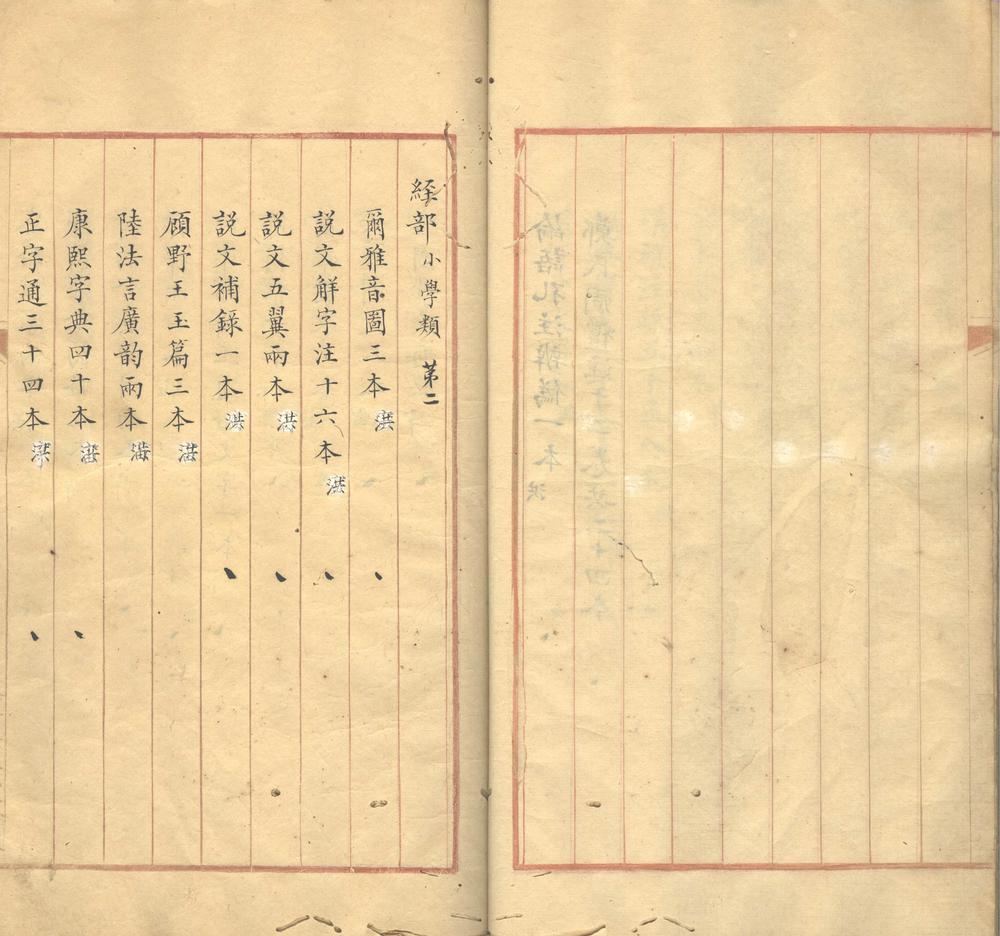 經部 小學類 第二
爾雅音圖三本 洪
説文解字注十六本
説文五翼兩本 洪
説文補錄一本 洪
顧野王玉篇三本 洪
陸法言廣韵兩本
康熙字典四十本
正字通三十四本